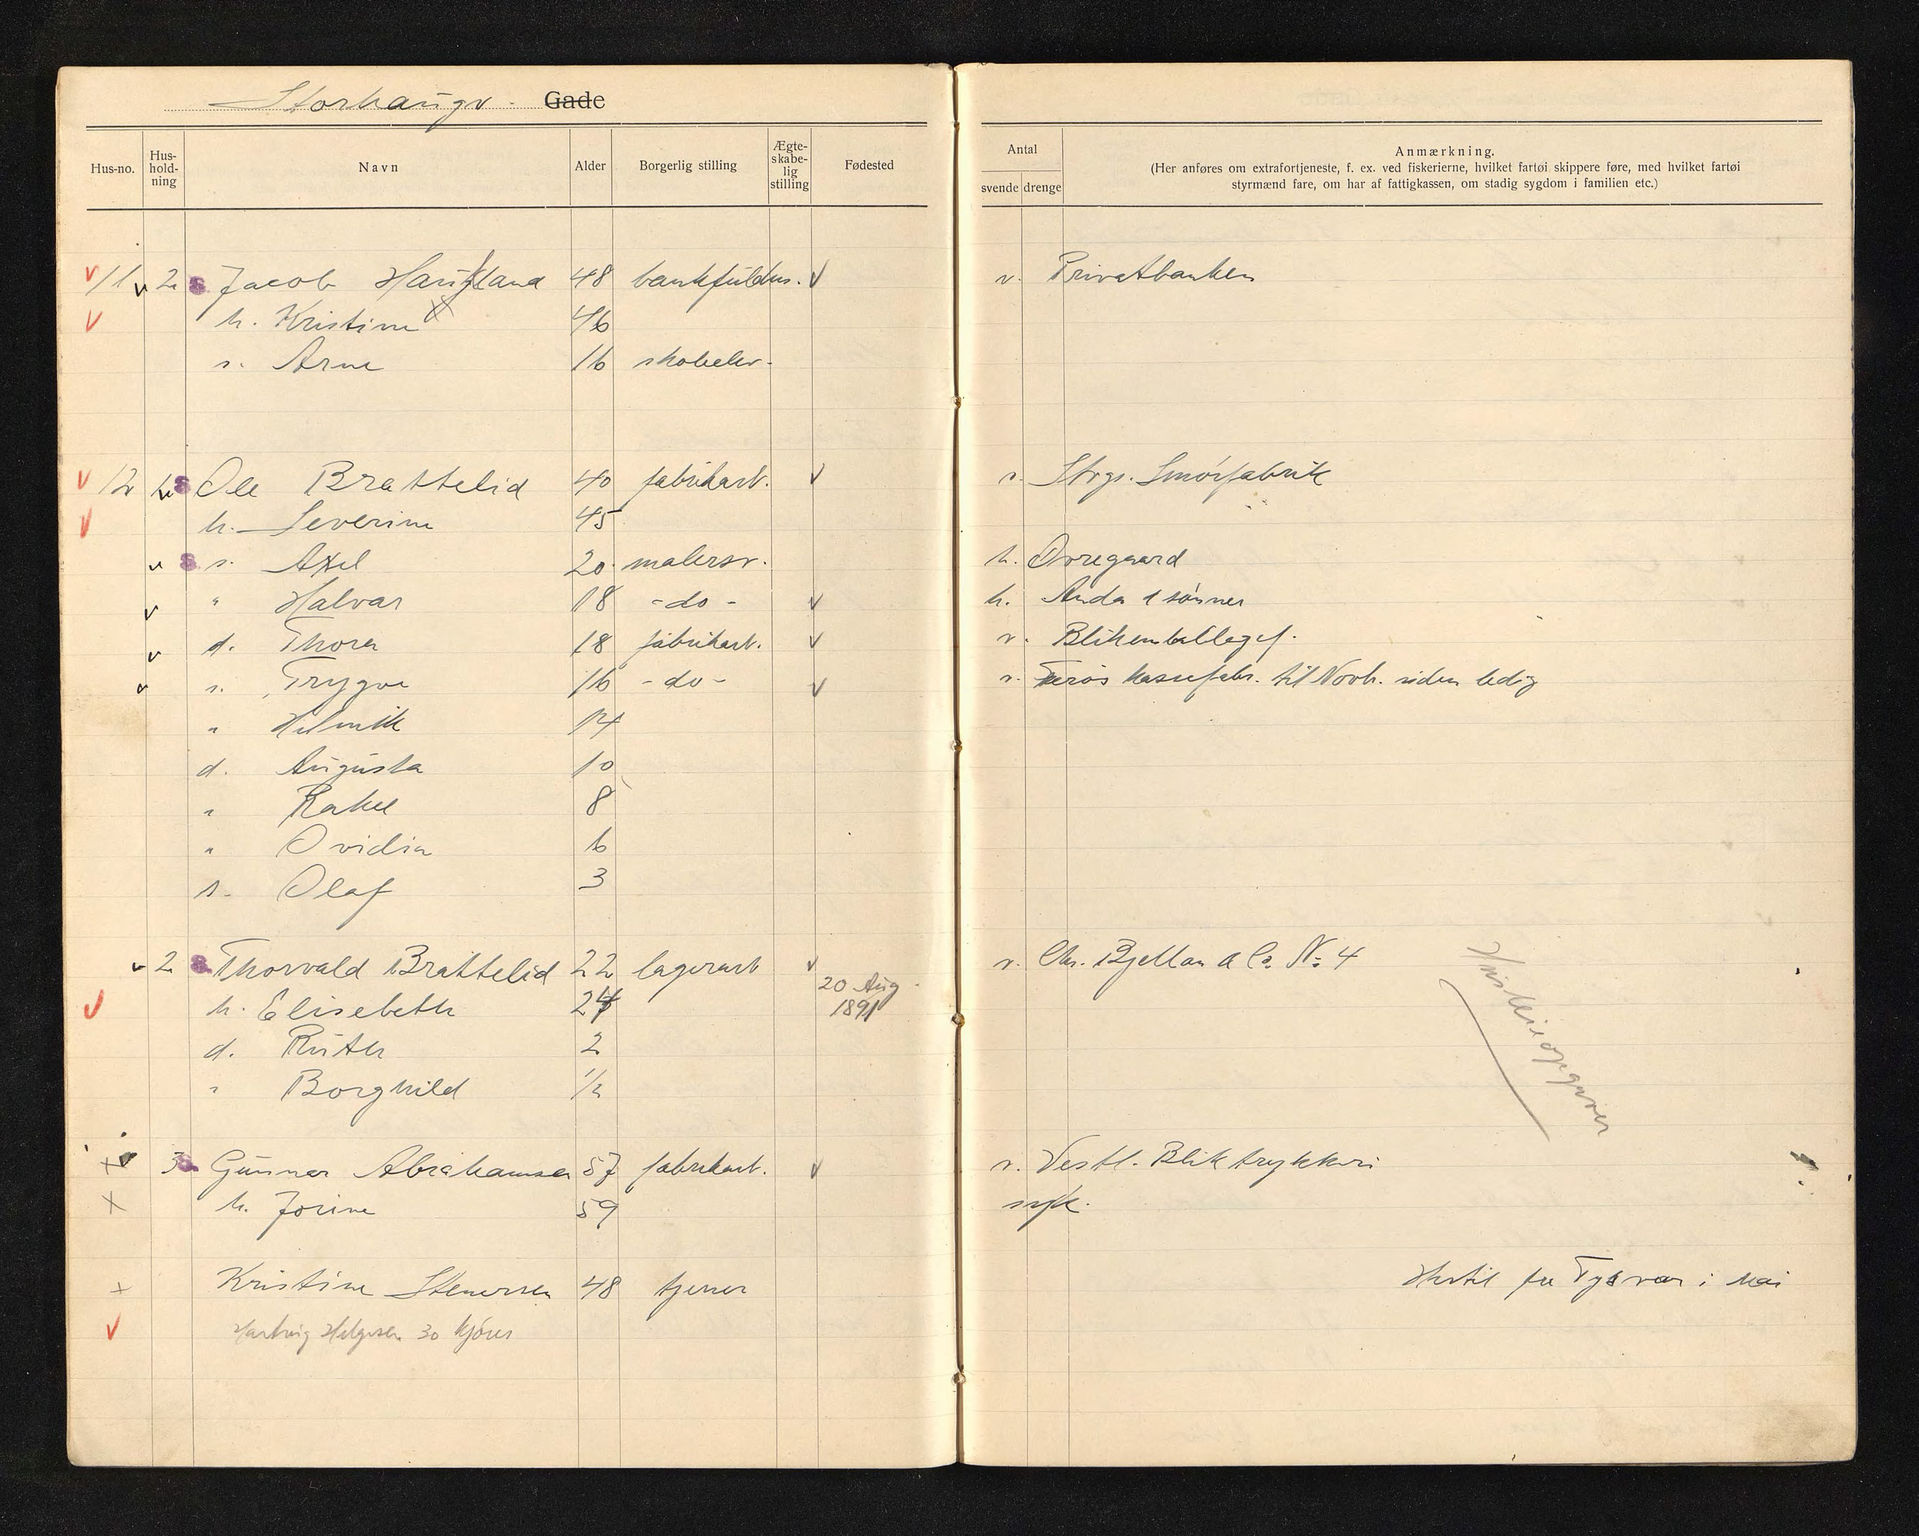 Storhaugv. Gade
Hus-no. Hus-hold-ning Navn Alder Borgerlig stilling Ægte-skabe-lig stilling Fødested Antal svende drenge Anmærkning.
(Her anføres om extrafortjeneste, f. ex. ved fiskerierne, hvilket fartøi skippere føre, med hvilket fartøi
styrmænd fare, om har af fattigkassen, om stadig sygdom i familien etc.)
11 2 s Jacob Haukland 48 bankfuldm. v. Privatbanken
h. Kristine 46
s. Arne 16 skoelev.
12 s Ole Brattelid 40 fabrikarb. v. Stvgs. Smørfabrik
h. Severine 45
s s. Axel 20 malersv. h. Orregaard
" Halvar 18 -do- h. Anda & sønner
d. Thora 18 fabrikarb. v. Blikemballagef.
s. Trygve 16 -do- v. kassefabr. til Novb. siden ledig
" 14
d. Augusta 10
" Rakel 8
" Ovidia 6
s. Olaf 3
2 s Thorvald Brattelid 22 lagerarb v. Chr. Bjelland & Co. No 4
h. Elisebeth 24 20 Aug 1891
d. Ruth 2
" Borghild 1/2
3 s Gunnar Abrahamsen 57 fabrikarb. v. Vestl. Bliktrykkeri
h. Jorine 59 syk.
Kristine Stenersen 48 tjener Hertil fra Tysvær i Mai
Hartvig Helgesen 30 kjører